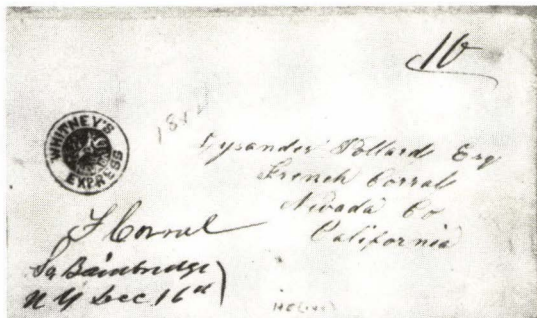 10
WHITNEY'S
EXPRESS
Lysander Pollard Esq
French Corral
Nevada Co
California
F Corral
So Bainbridge
N Y Dec 16th